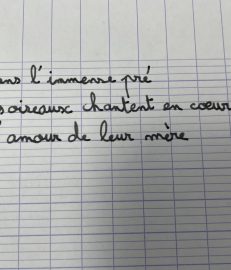 ans l'immense pré
oiseaux chantent en coeur
amour de leur mère